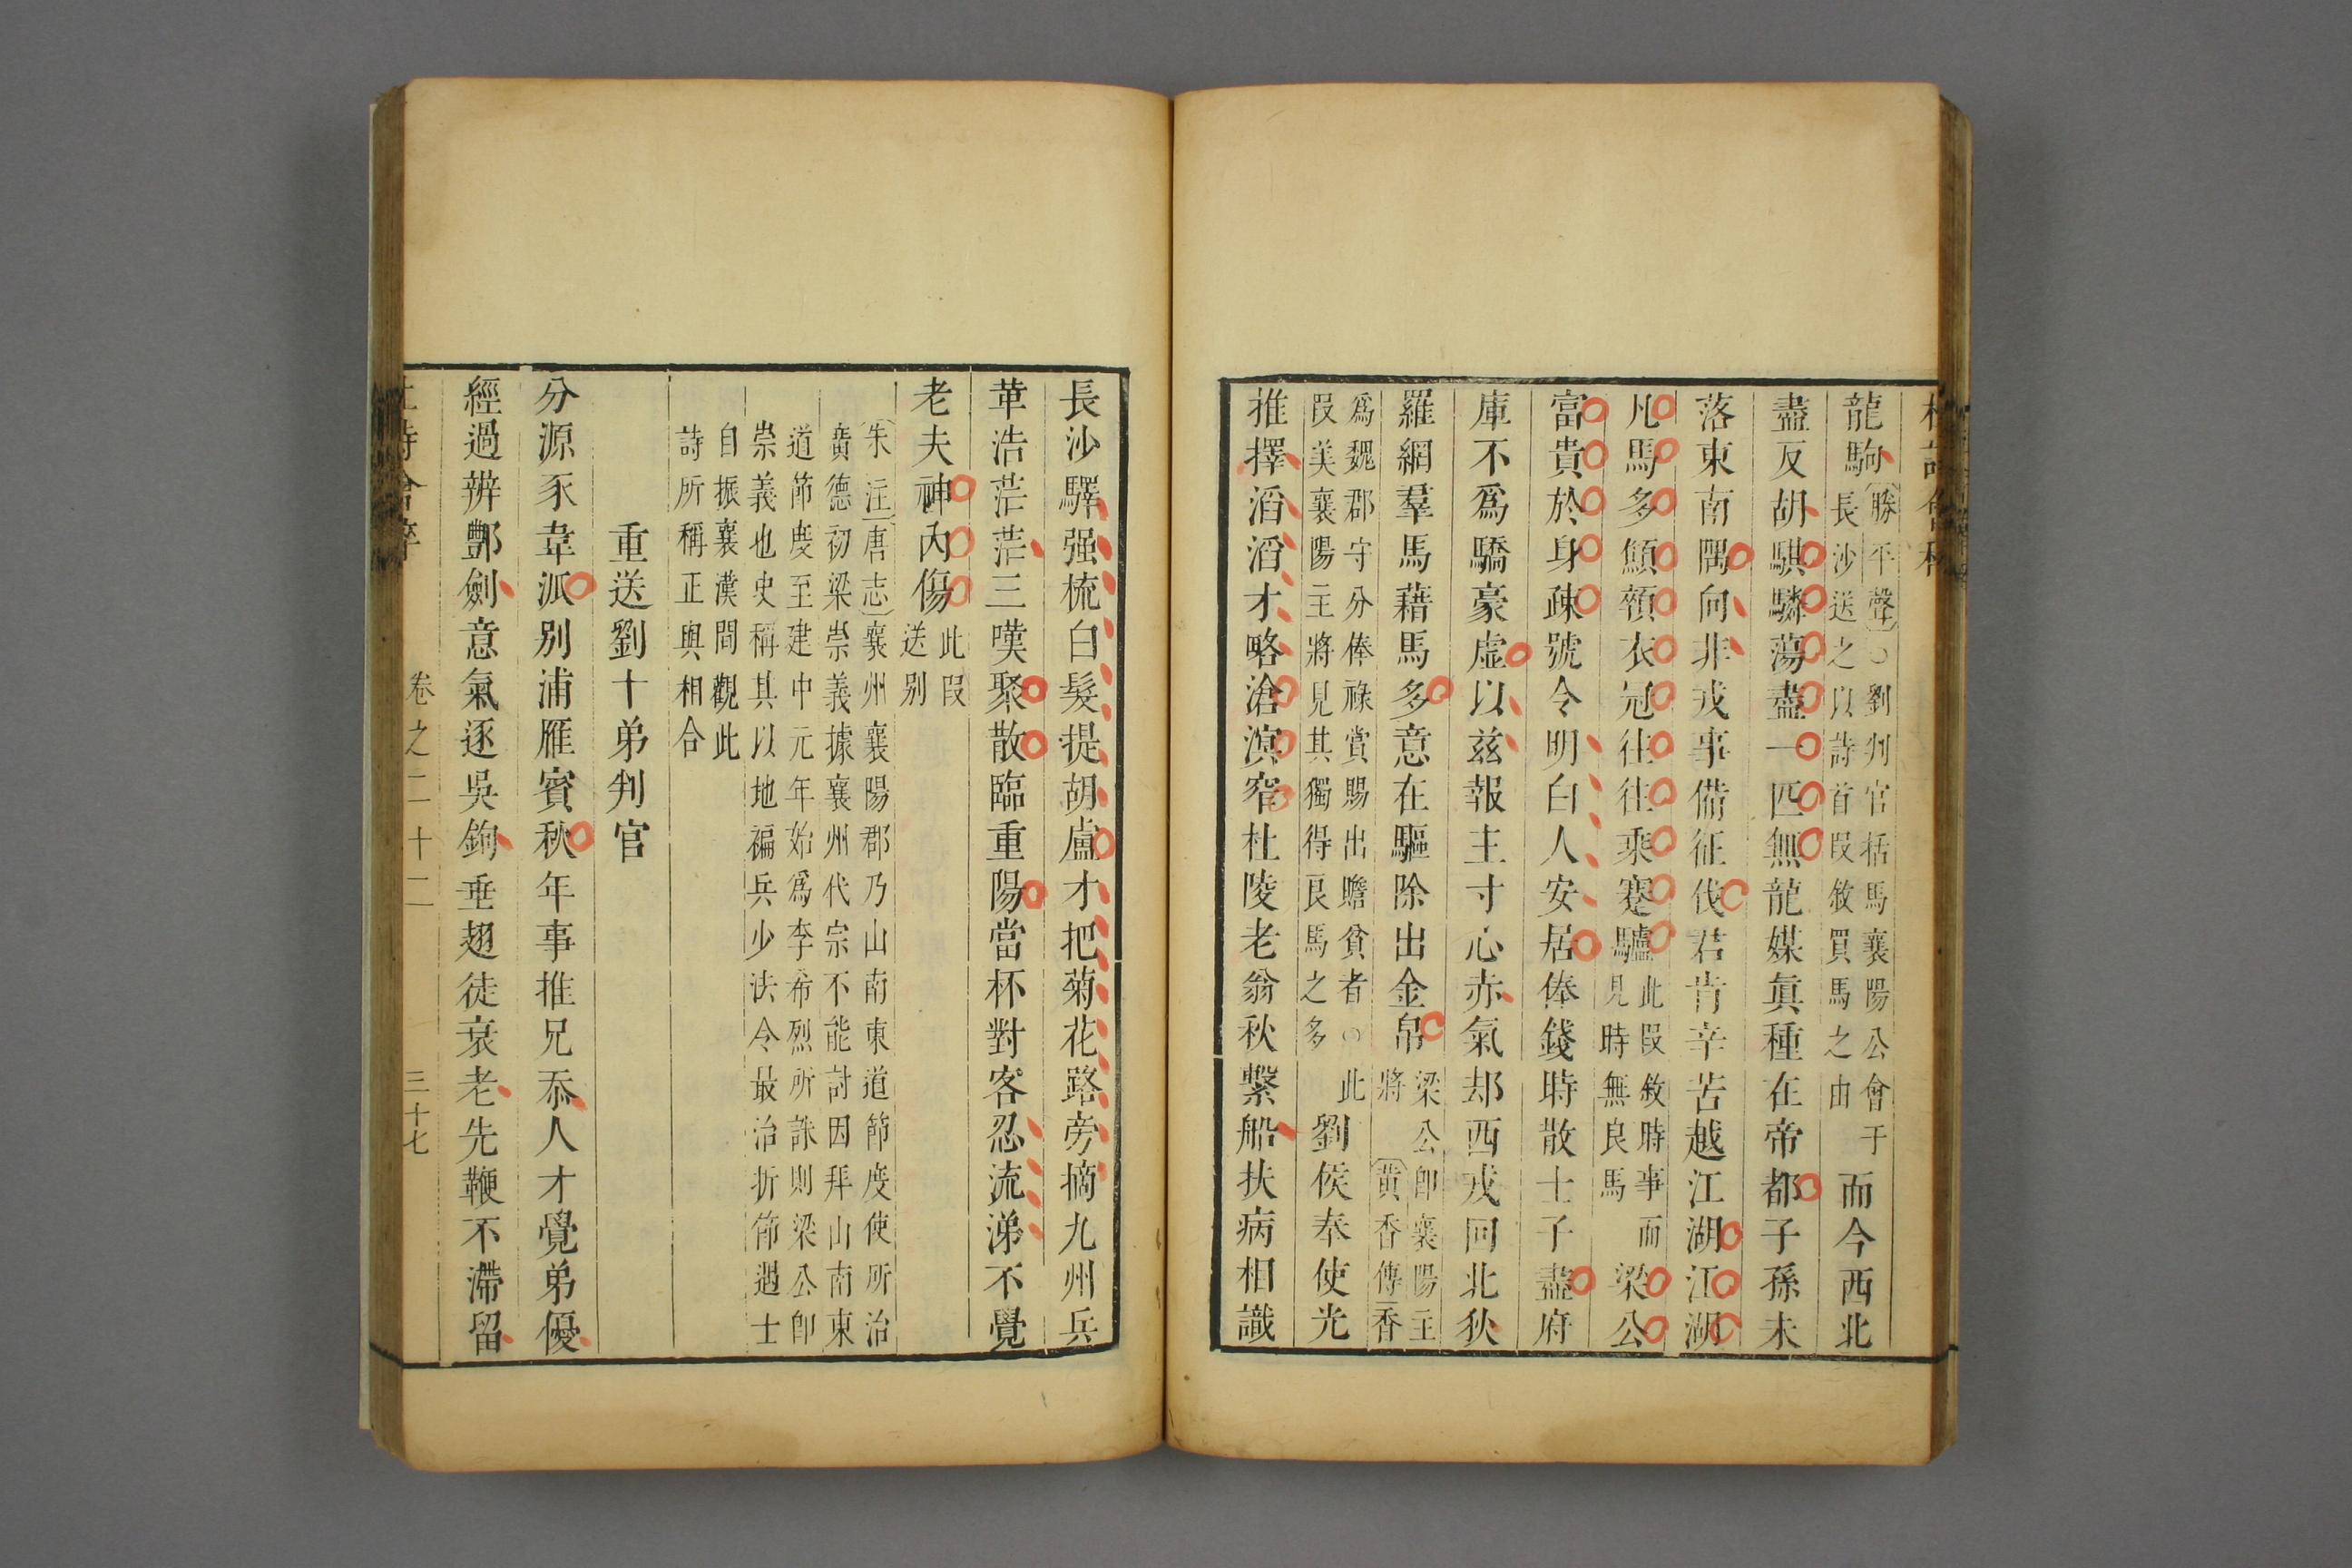 龍駒〔勝平聲〕○劉判官括馬襄陽公會于長沙送之以詩首段敘買馬之由而今西北
盡反胡騏驎蕩盡一匹無龍媒眞種在帝都子孫未
落東南隅向非戎事備征伐君肯辛苦越江湖江湖
凡馬多顦顇衣冠往往乘蹇驢此段敘時事而見時無良馬梁公
富貴於身疎號令明白人安居俸錢時散士子盡府
庫不爲驕豪虛以茲報主寸心赤氣却西戎回北狄
羅網羣馬藉馬多意在驅除出金帛梁公卽襄陽主將〔黃香傳〕香
爲魏郡守分俸祿賞賜出贍貧者○此段美襄陽主將見其獨得良馬之多劉侯奉使光
推擇滔滔才略滄溟窄杜陵老翁秋繫船扶病相識
長沙驛强梳白髮提胡盧才把菊花路旁摘九州兵
革浩茫茫三嘆聚散臨重陽當杯對客忍流涕不覺
老夫神內傷此段送別
〔朱注〕〔唐志〕襄州襄陽郡乃山南東道節度使所治
廣德初梁崇義據襄州代宗不能討因拜山南東
道節度至建中元年始爲李希烈所誅則梁公卽
崇義也史稱其以地褊兵少法令最治折節遇士
自振襄漢間觀此
詩所稱正與相合
重送劉十弟判官
分源豕韋派別浦雁賓秋年事推兄忝人才覺弟優
經過辨酆劍意氣逐吳鉤垂翅徒衰老先鞭不滯留
卷之二十二 三十七